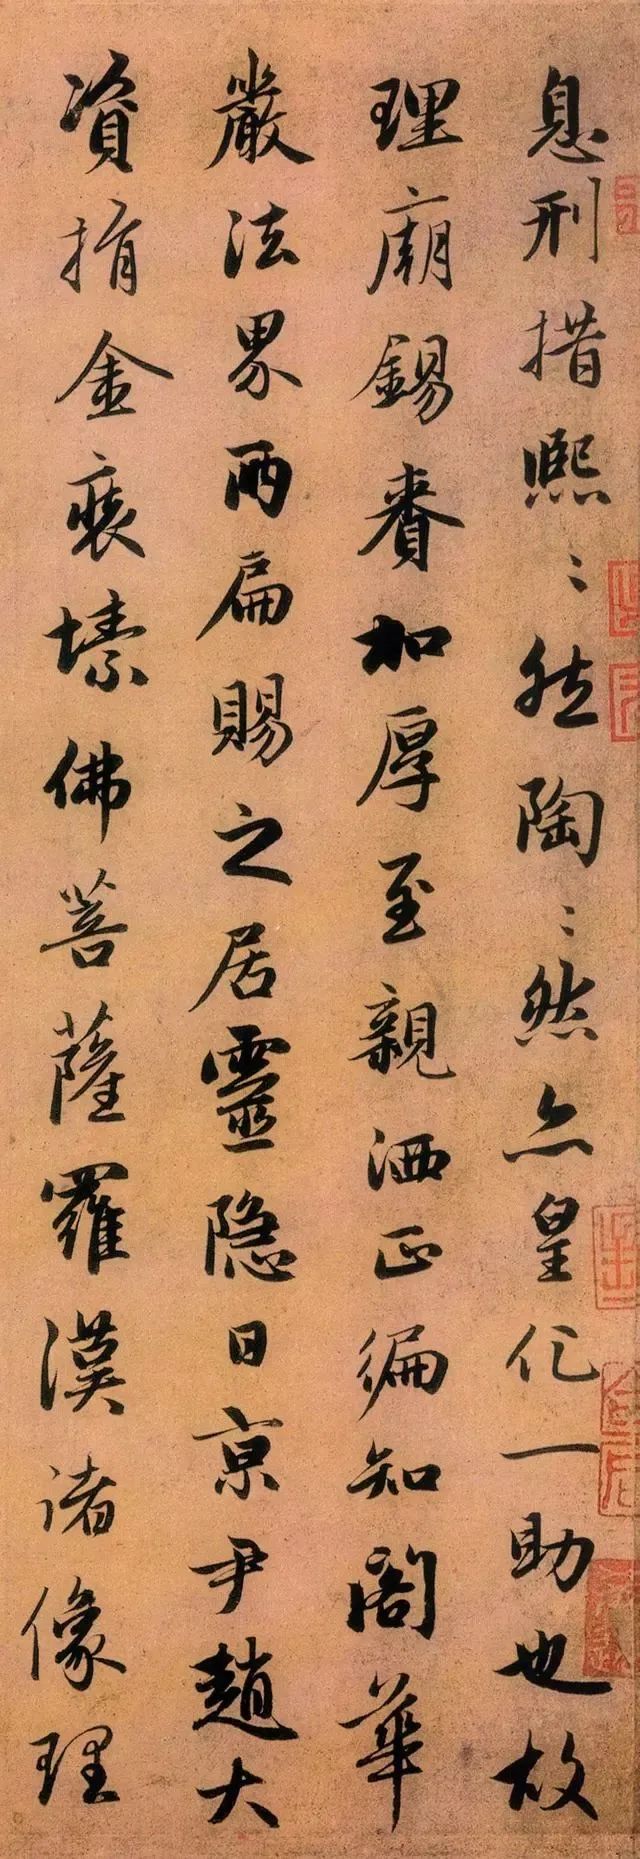 息刑措熙〻然陶〻然亦皇化一助也故
理廟錫賚加厚至親洒正徧知閣華
嚴法界两扁賜之居靈隐日京尹趙大
資捐金裝塐佛菩薩羅漢诸像理